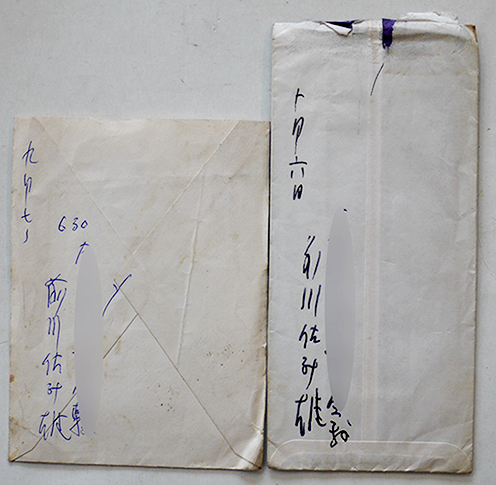 十月六日
前川佐美雄
九月七日
630
前川佐美雄